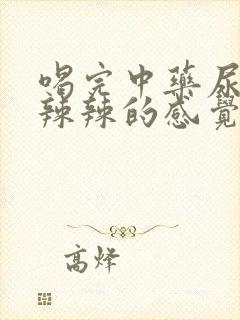 喝完中藥尿
辣辣的感覺
高烽